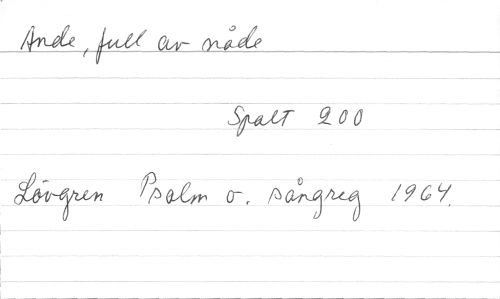 Ande, full av nåde
Spalt 200
Lövgren Psalm o. sångreg 1964.